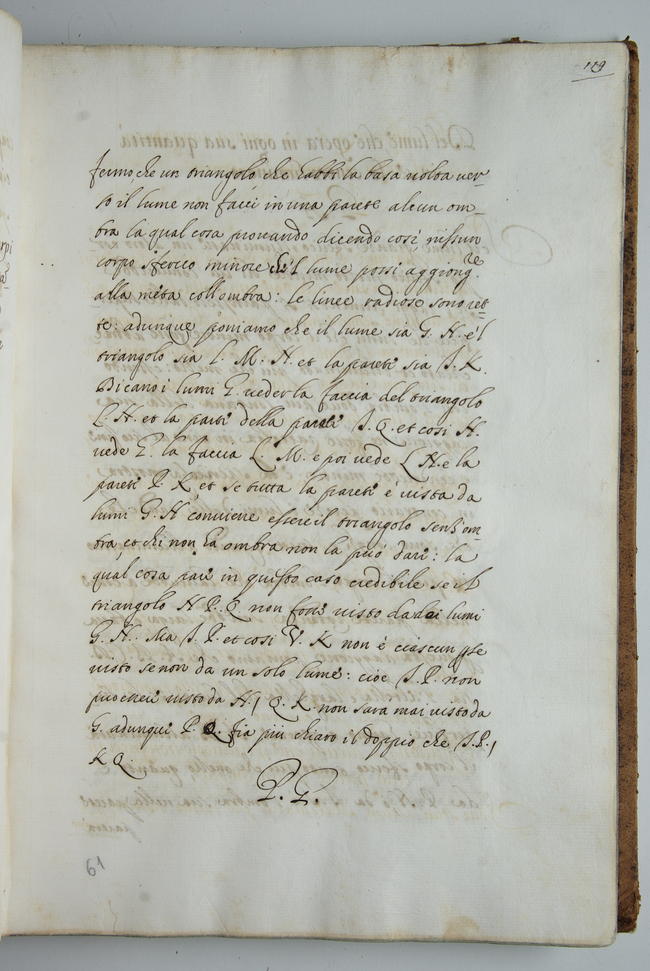 119
fermo, che un triangolo che habbi la basa volta ver-
so il lume non facci in una parete alcun om-
bra la qual cosa provando dicendo così, nissun
corpo sferico minore ch'il lume possi aggiong.re
alla metà coll'ombra: le linee radiose sono ret-
te: adunque poniamo che il lume sia G. H. e'l
triangolo sia L. M. N. et la parete sia I. K.
Dicano i lumi G. veder la faccia del triangolo
L. N. et la parte della parete I. Q. et così H.
vede la faccia L. M. e poi vede L N. e la
parete P. K et se tutta la parete è vista da
lumi G. H conviene essere il triangolo senz'om-
bra, et chi non ha ombra non la può dare: la
qual cosa pare in questo caso credibile se il
triangolo N P. Q. non fosse visto da doi lumi
G. H. Ma I. P. et così V. K non è ciascun p se
visto se non da un solo lume: cioè I. P. non
può essere visto da H, Q. K non sarà mai visto da
G. adunque P Q. fia più chiaro il doppio che I. P.,
K Q.
P. G.
61